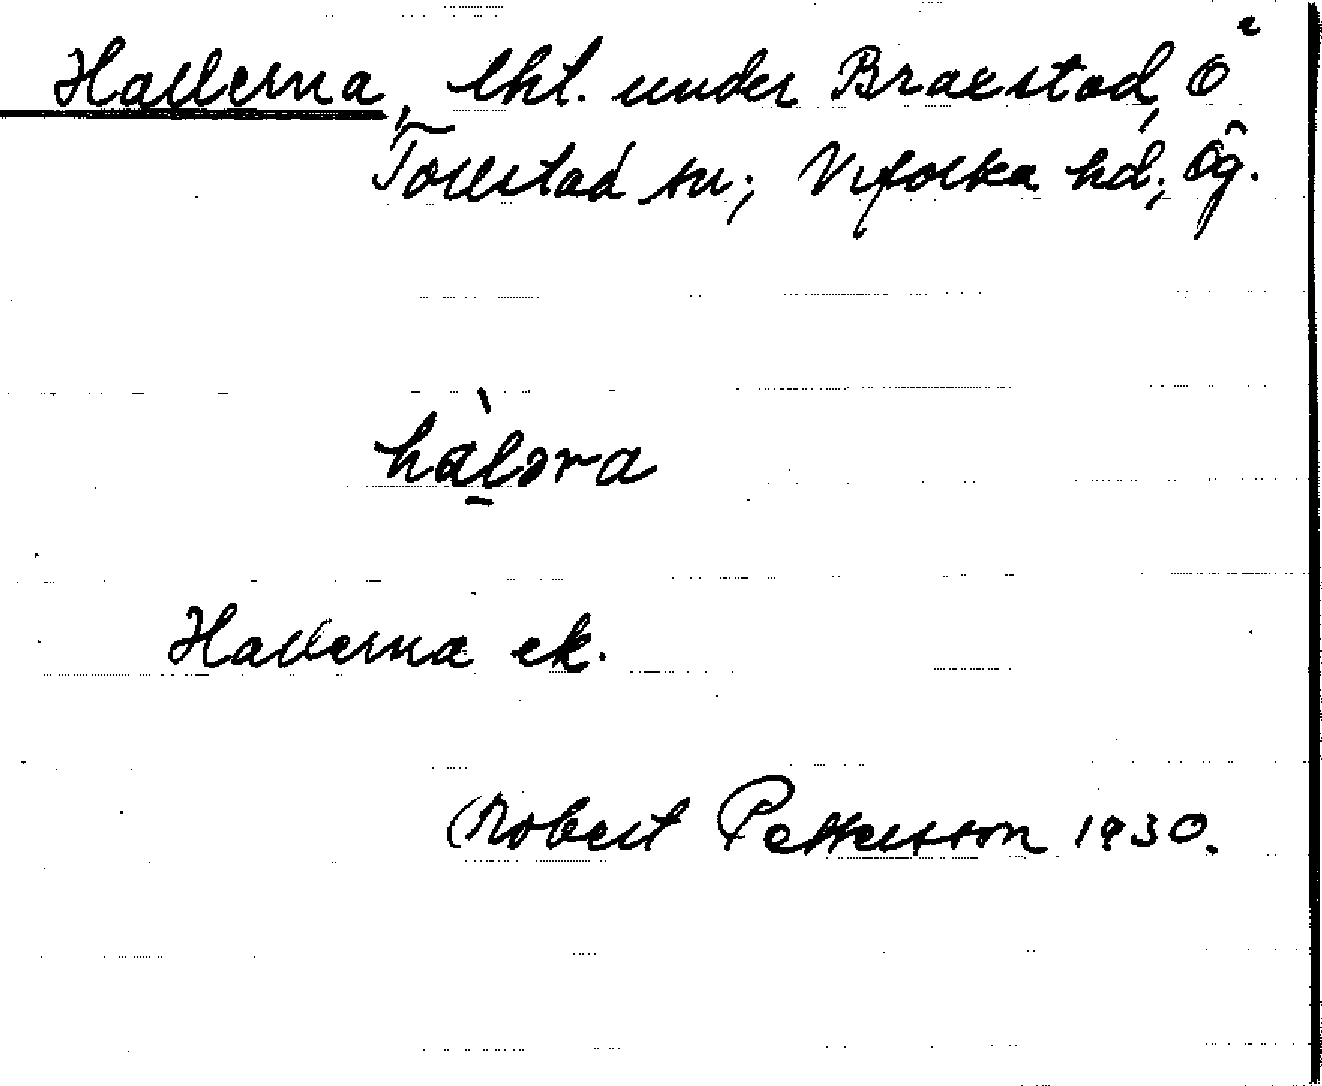 Hallerna, lht. under Braestad, Ö
Tollstad sn; Vifolka hd; Ög.
hàləra
Hallerna ek.
Robert Pettersson 1930.